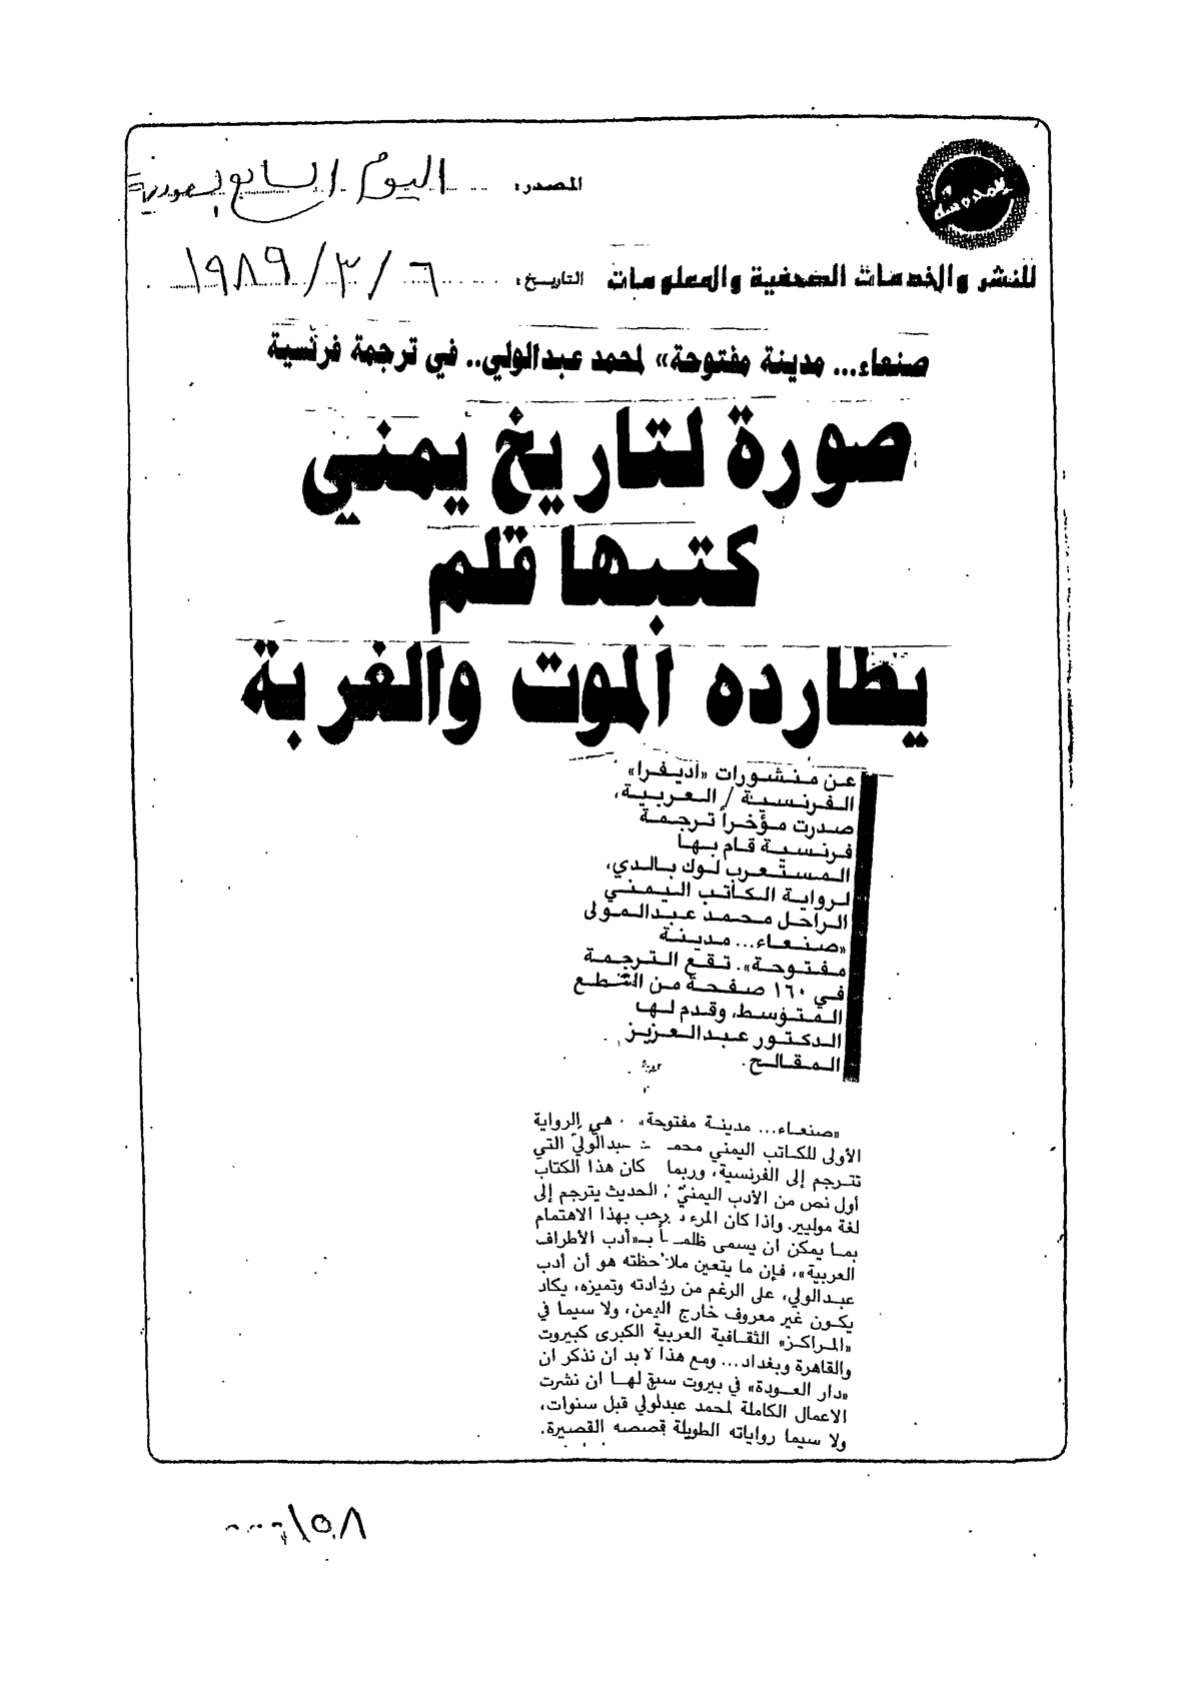 المحروسة
المصدر: اليوم السابع بسعودية
للنشر والخدمات الصحفية والمعلومات
التاريخ: ٦ / ٣ / ١٩٨٩
صنعاء... مدينة مفتوحة» لمحمد عبدالولي.. في ترجمة فرنسية
صورة لتاريخ يمني
كتبها قلم
يطارده الموت والغربة
عن منشورات «اديفرا»
الفرنسية / العربية،
صدرت مؤخراً ترجمة
فرنسية قام بها
المستعرب لوك بالدي،
لرواية الكاتب اليمني
الراحل محمد عبدالمولى
«صنعاء... مدينة
مفتوحة». تقع الترجمة
في ١٦٠ صفحة من القطع
المتوسط، وقدم لها
الدكتور عبدالعزيز
المقالح.
«صنعاء... مدينة مفتوحة» هي الرواية
الأولى للكاتب اليمني محمد عبدالوليّ التي
تترجم إلى الفرنسية، وربما كان هذا الكتاب
أول نص من الأدب اليمنيّ الحديث يترجم إلى
لغة موليير. واذا كان المرء يرحب بهذا الاهتمام
بما يمكن ان يسمى ظلماً بـ«أدب الأطراف
العربية»، فإن ما يتعين ملاحظته هو أن أدب
عبدالولي، على الرغم من ريادته وتميزه، يكاد
يكون غير معروف خارج اليمن، ولا سيما في
«المراكز» الثقافية العربية الكبرى كبيروت
والقاهرة وبغداد... ومع هذا لا بد ان نذكر ان
«دار العودة» في بيروت سبق لها ان نشرت
الاعمال الكاملة لمحمد عبدلولي قبل سنوات،
ولا سيما رواياته الطويلة قصصه القصيرة.
١٥٨